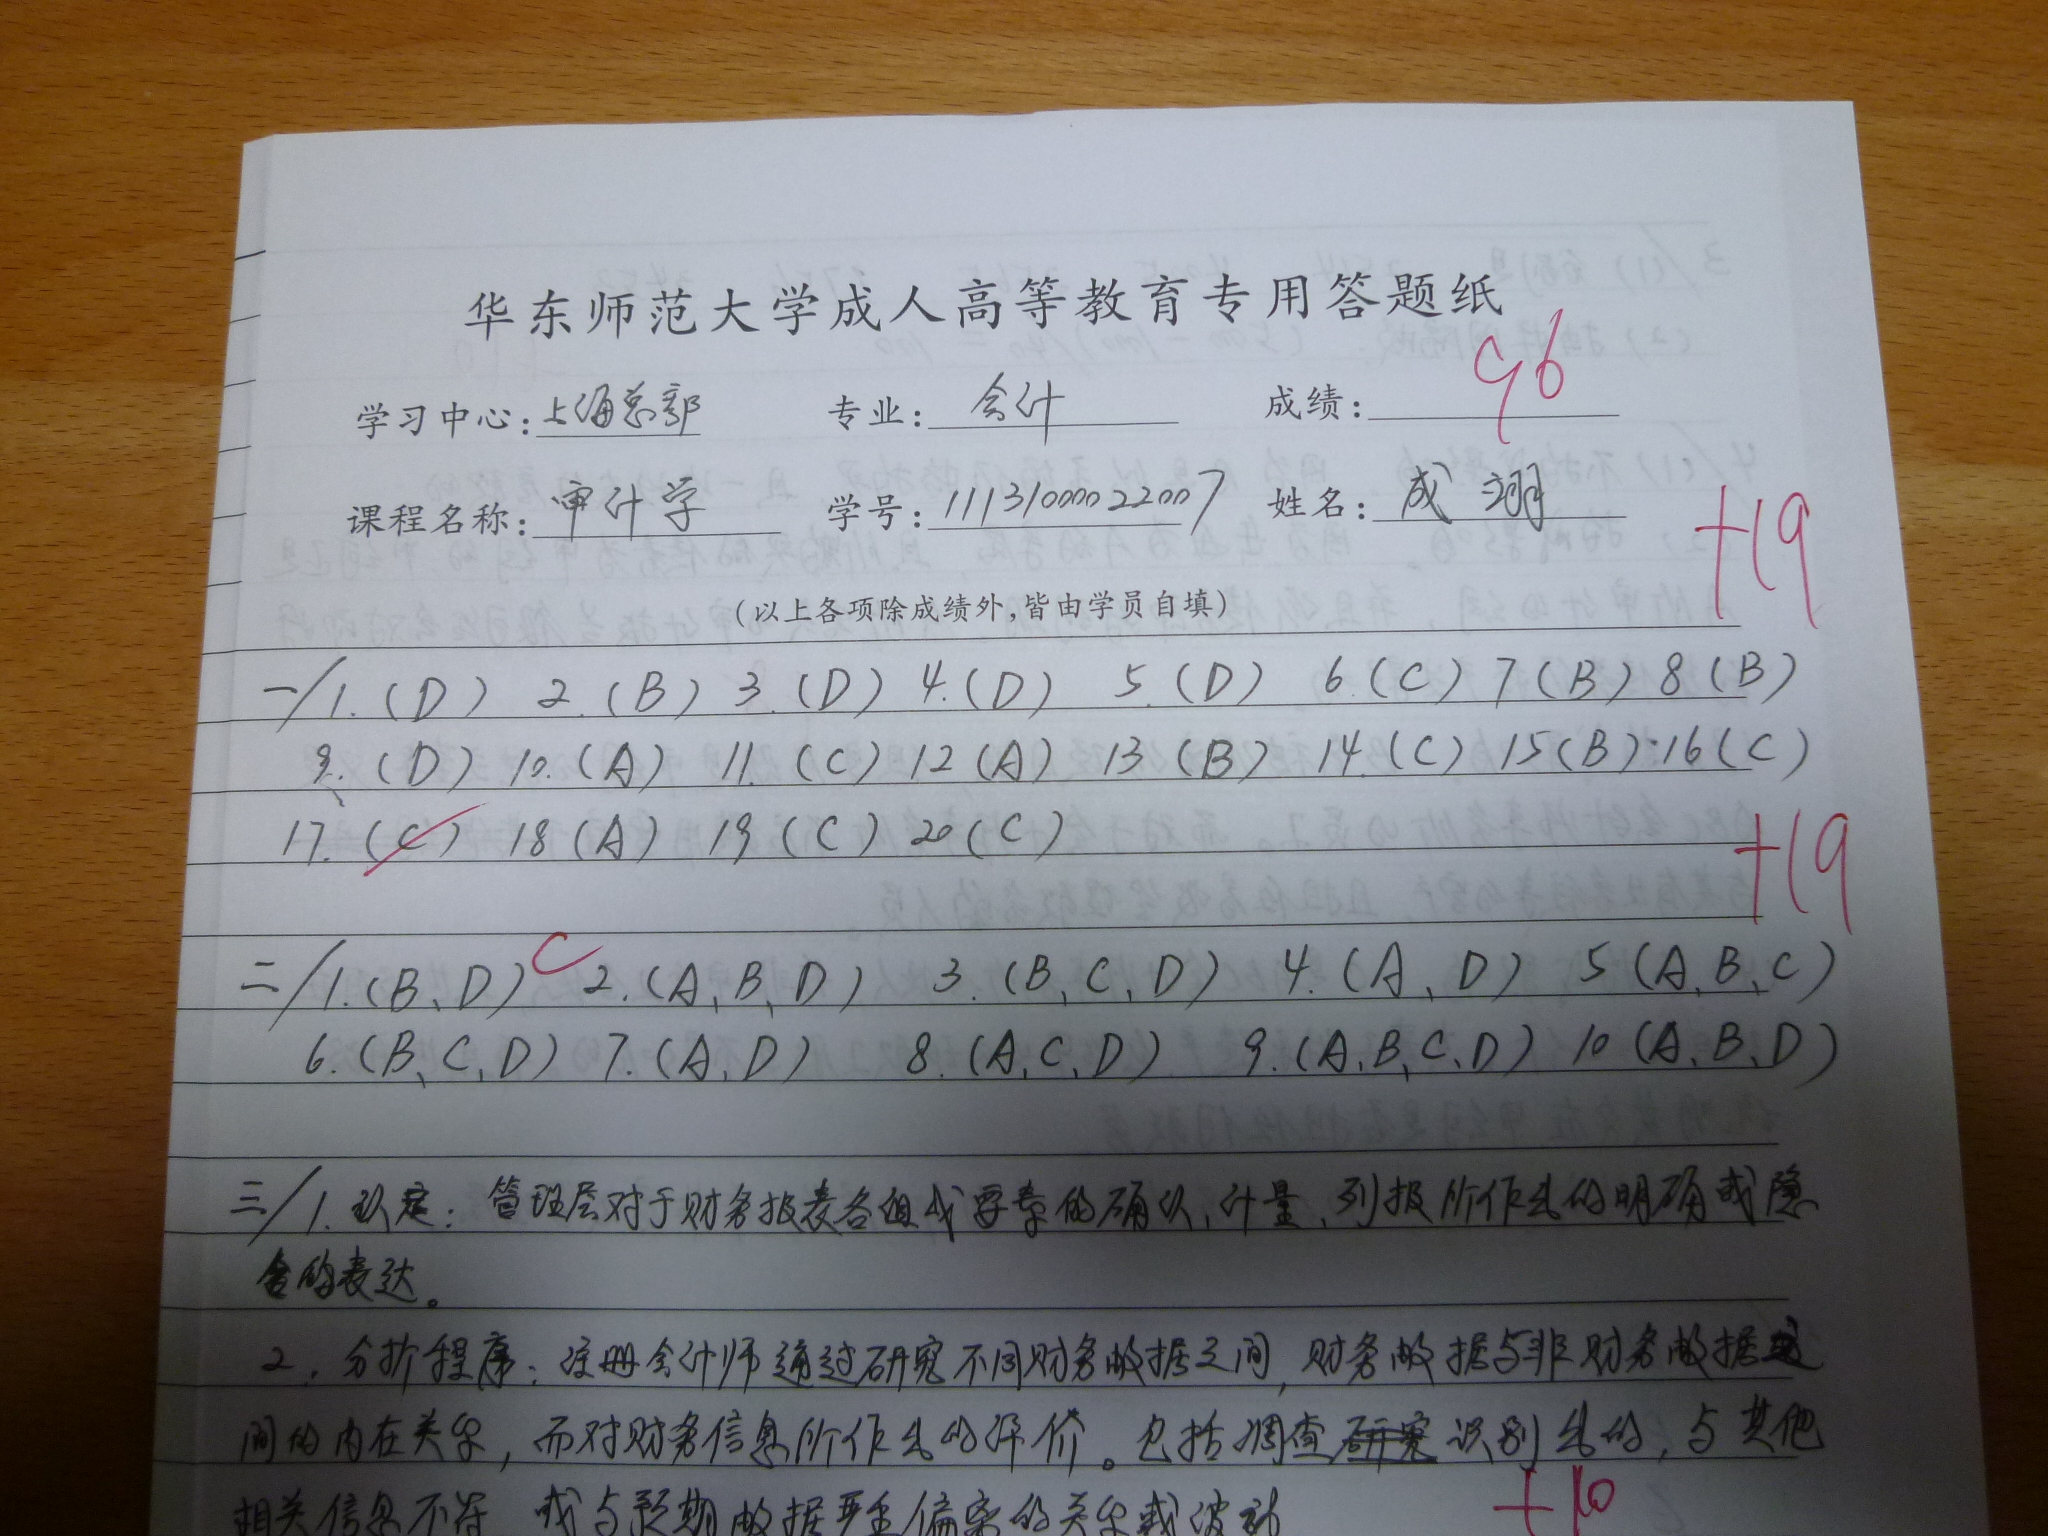 华东师范大学成人高等教育专用答题纸
学习中心:上海总部 专业:会计 成绩:96
课程名称:审计学 学号:111310000022007 姓名:成翊
+19
(以上各项除成绩外,皆由学员自填)
一/1.(D) 2.(B) 3.(D) 4.(D) 5.(D) 6.(C) 7(B) 8(B)
9.(D) 10.(A) 11.(C) 12(A) 13(B) 14.(C) 15(B) 16(C)
17.(C) 18(A) 19(C) 20(C)
+19
二/1.(B、D) C 2.(A、B、D) 3.(B、C、D) 4.(A、D) 5(A、B、C)
6.(B、C、D) 7.(A、D) 8.(A、C、D) 9.(A、B、C、D) 10(A、B、D)
三/1.认定:管理层对于财务报表各组成要素的确认、计量、列报所作出的明确或隐
含的表达。
2.分析程序:注册会计师通过研究不同财务数据之间,财务数据与非财务数据之
间的内在关系,而对财务信息所作出的评价。包括调查识别出的,与其他
相关信息不符 或与预期数据严重偏离的关系或波动
+10